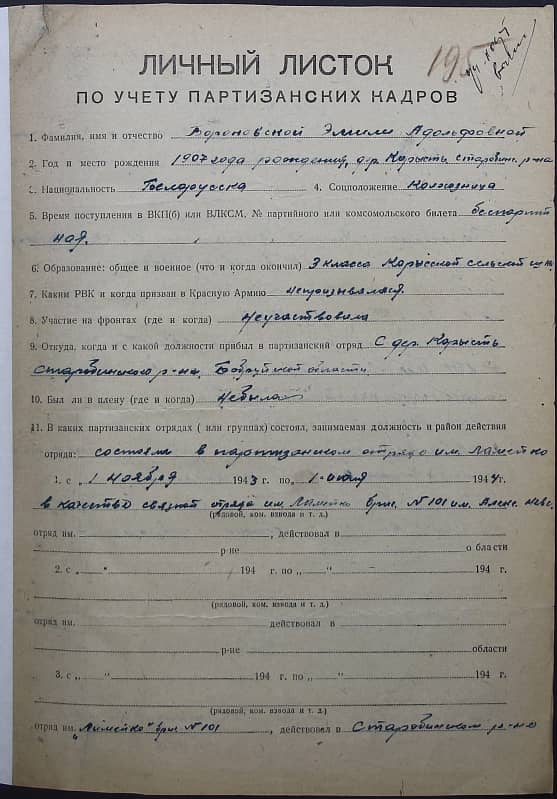 195
ЛИЧНЫЙ ЛИСТОК
ПО УЧЕТУ ПАРТИЗАНСКИХ КАДРОВ
1. Фамилия, имя и отчество Вороновской Эмили Адольфовной
2. Год и место рождения 1907 года рождения, дер. Корысть Старобин. р-на
3. Национальность Белорусска 4. Соцположение Колхозница
5. Время поступления в ВКП(б) или ВЛКСМ, № партийного или комсомольского билета беспартий
ная.
6. Образование: общее и военное (что и когда окончил) 3 класса Корысской сельской
7. Каким РВК и когда призван в Красную Армию непризывалась
8. Участие на фронтах (где и когда) Неучаствовала
9. Откуда, когда и с какой должности прибыл в партизанский отряд С дер. Корысть
Старобинского р-на, Бобруйской области
10. Был ли в плену (где и когда) Небыла
11. В каких партизанских отрядах ( или группах) состоял, занимаемая должность и район действия
отряда: состояла в партизанском отряде им.
1. с „1 ноября 1943 г. по „1-июля 1944 г.
в качестве связной отряда им. бриг. №101 им. Алекс. Невс.
(рядовой, ком. взвода и т. д.)
отряд им. , действовал в
р-не о области
2. с „ “ 194 г. по „ “ 194 г.
(рядовой, ком. взвода и т. д.)
отряд им. действовал в
р-не области
3. с „ “ 194 г. по „ “ 194 г.
(рядовой, ком. взвода и т. д.)
отряд им. бриг №101 , действовал в Старобинском р-не